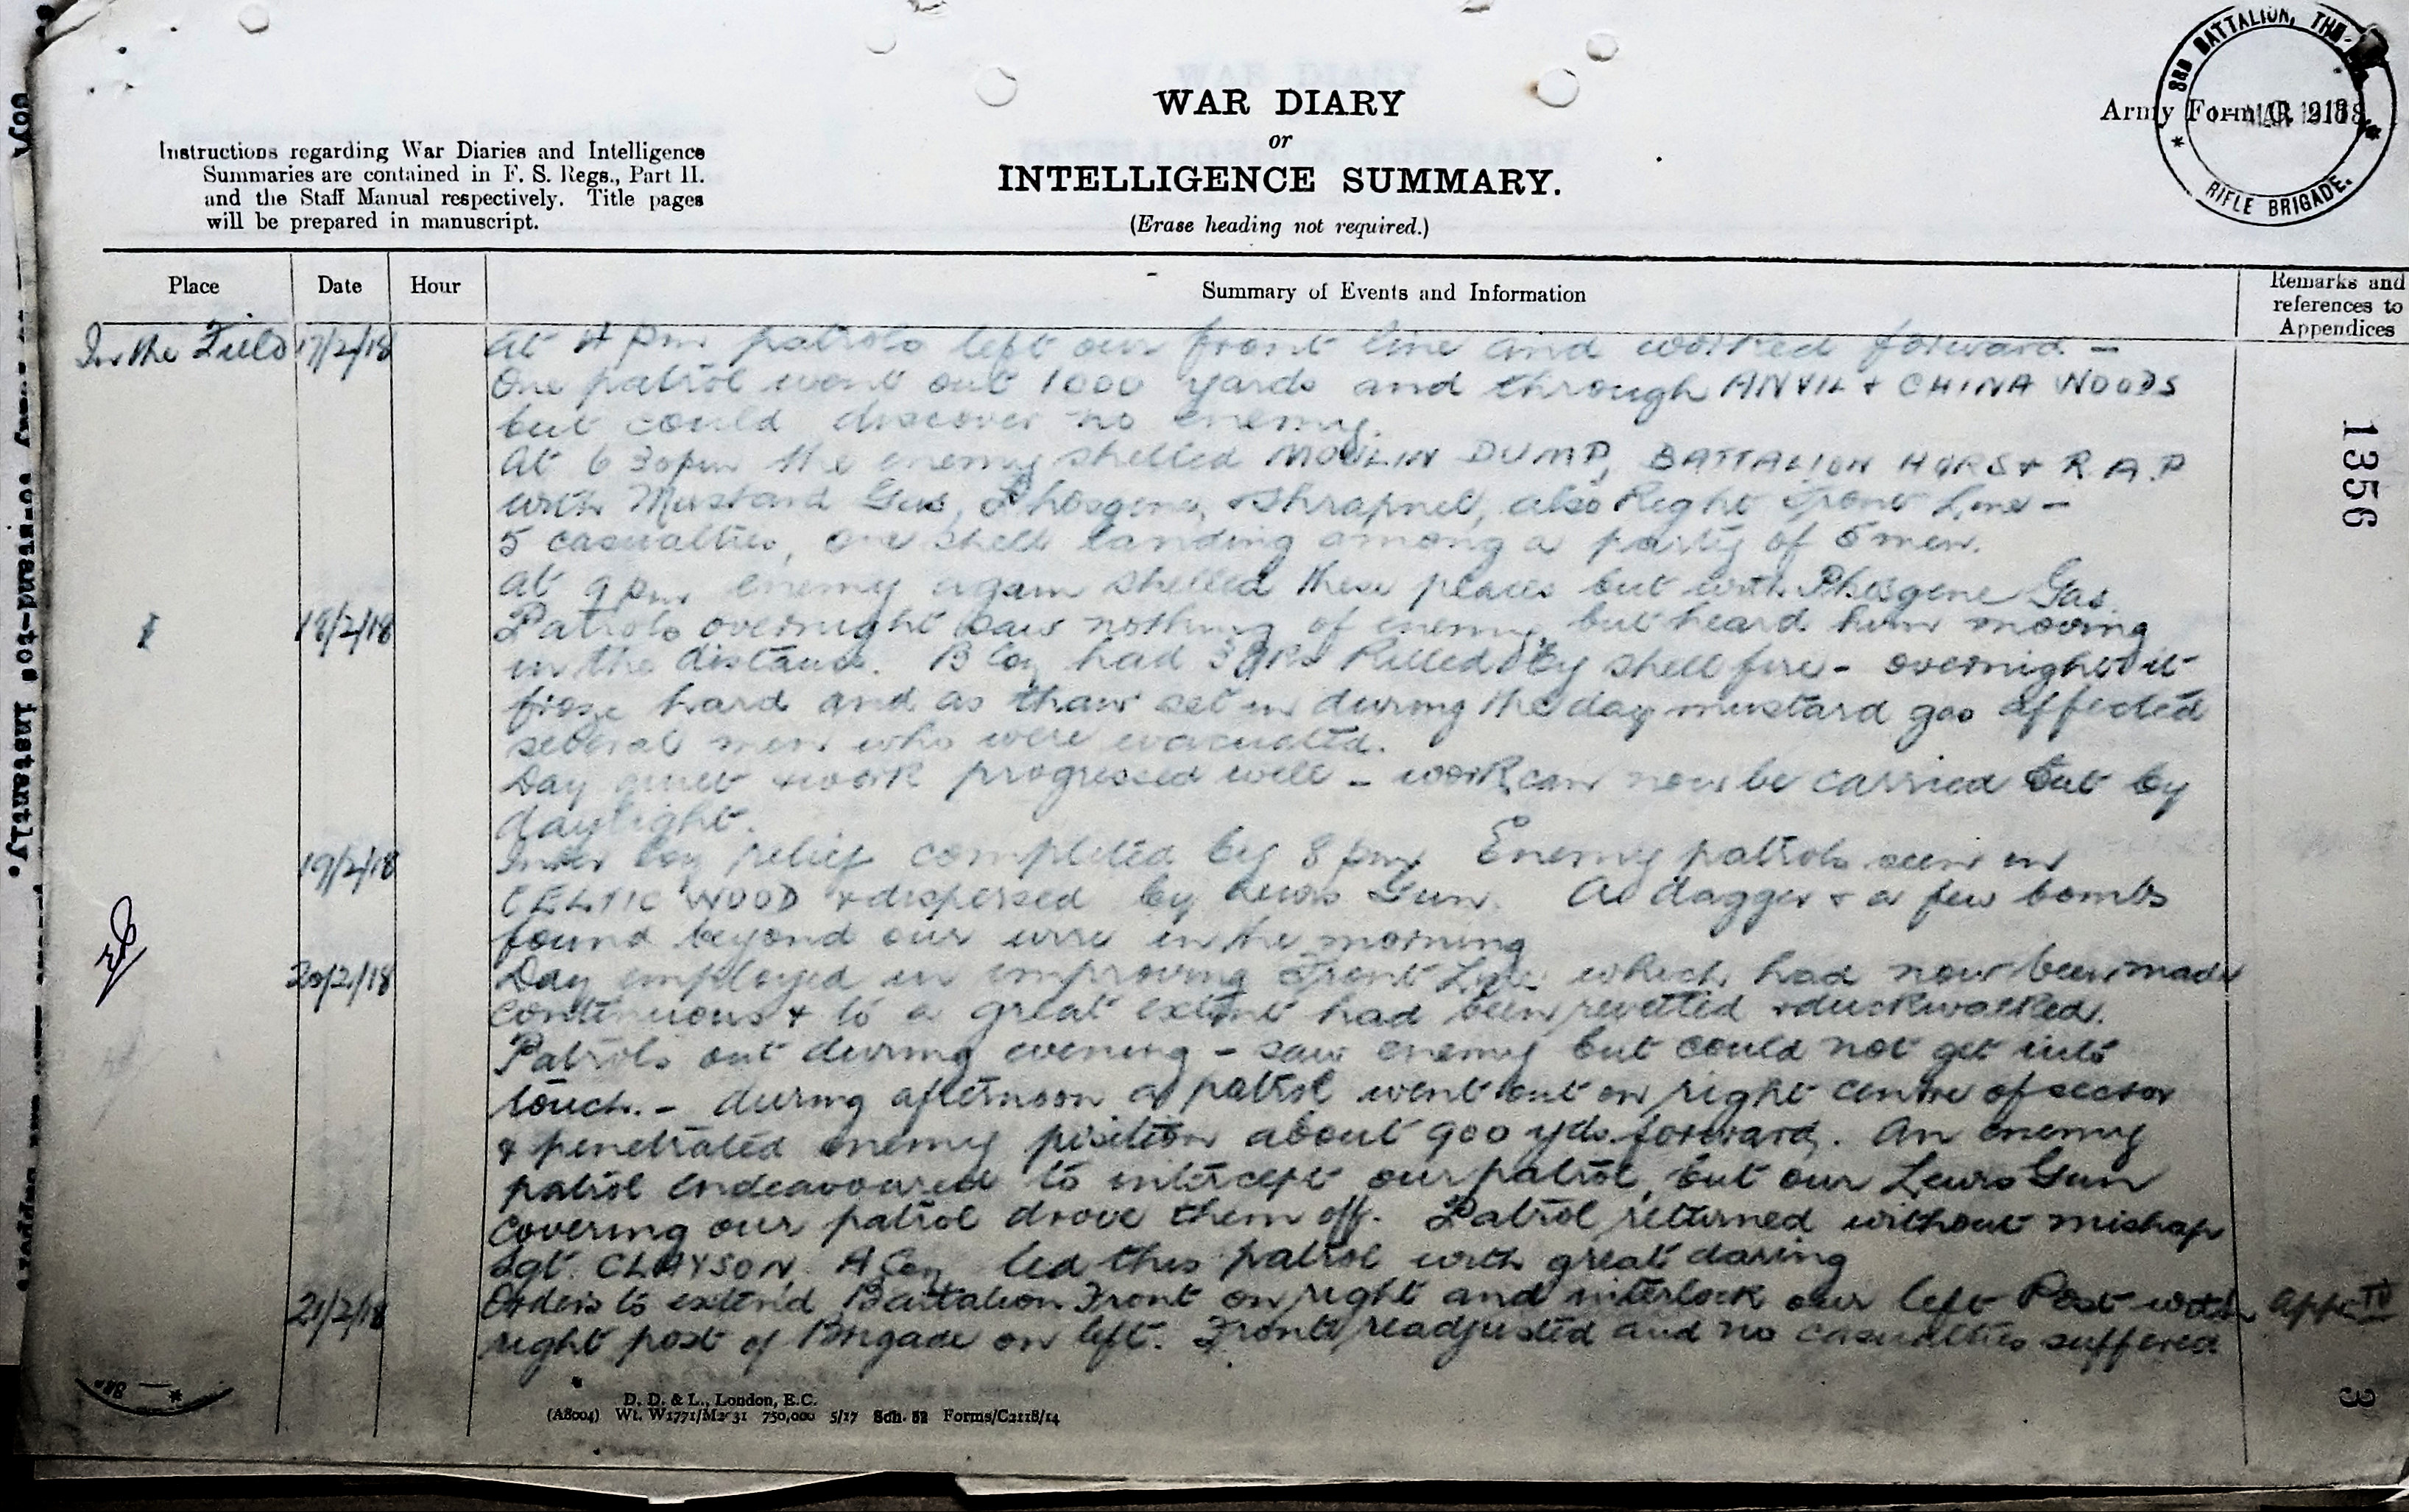 WAR DIARY
or
INTELLIGENCE SUMMARY.
(Erase heading not required.)
Army Form C. 2118.
3RD BATTALION, THE
MAR 1918
RIFLE BRIGADE.
Instructions regarding War Diaries and Intelligence
Summaries are contained in F. S. Regs., Part II.
and the Staff Manual respectively. Title pages
will be prepared in manuscript.
Place Date Hour Summary of Events and Information Remarks and
references to
Appendices
In the Field 17/2/18 At 4 pm patrols left our front line and worked forward —
One patrol went out 1000 yards and through ANVIL + CHINA WOODS
but could discover no enemy.
At 6 30pm the enemy shelled MOULIN DUMP, BATTALION HQRS + R.A.P
with Mustard Gas, Phosgene, + Shrapnel, also Right Front Line —
5 casualties, one shell landing among a party of 5 men.
At 9 pm enemy again shelled these places but with Phosgene Gas.
18/2/18 Patrols overnight saw nothing of enemy, but heard him moving
in the distance. B Coy had 3 ORs killed by shell fire - overnight it
froze hard and as thaw set in during the day mustard gas affected
several men who were evacuated.
Day quiet + work progressed well - work can now be carried out by
daylight.
19/2/18 Inter Coy relief completed by 8 pm Enemy patrols seen in
CELTIC WOOD + dispersed by Lewis Gun. A dagger + a few bombs
found beyond our wire in the morning
20/2/18 Day employed in improving Front Line which had now been made
continuous + to a great extent had been revetted + duckwalked.
Patrols out during evening - saw enemy but could not get into
touch. - during afternoon a patrol went out on right centre of sector
+ penetrated enemy position about 900 yds. forward. An enemy
patrol endeavoured to intercept our patrol, but our Lewis Gun
covering our patrol drove them off. Patrol returned without mishap
Sgt. CLAYSON, A Coy led this patrol with great daring
21/2/18 Orders to extend Battalion Front on right and interlock our left Post with App. IV
right post of Brigade on left. Fronts readjusted and no casualties suffered
1356
3
D. D. & L., London, E.C.
(A8004) Wt. W1771/M2 31 750,000 5/17 Sch. 52 Forms/C2118/14
instantly.